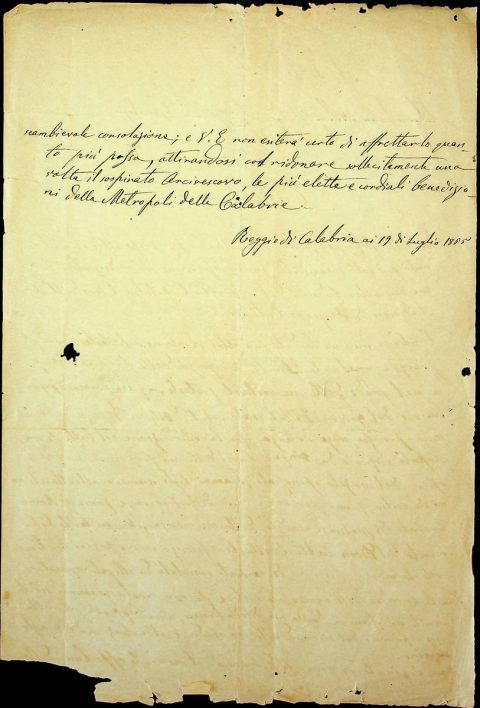 scambievole consolazione; e V. E. non esiterà certo di affrettarlo quan-
to più possa, attirandosi col ridonare sollecitamente una
volta il sospirato Arcivescovo, le più elette e cordiali benedizio-
ni della Metropoli delle Calabrie.
Reggio di Calabria ai 19 di Luglio 1885